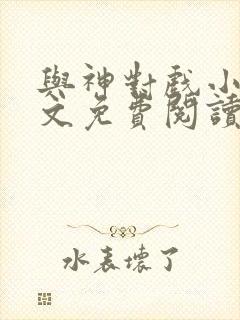 與神對戲小
文免費閱讀
水表壞了